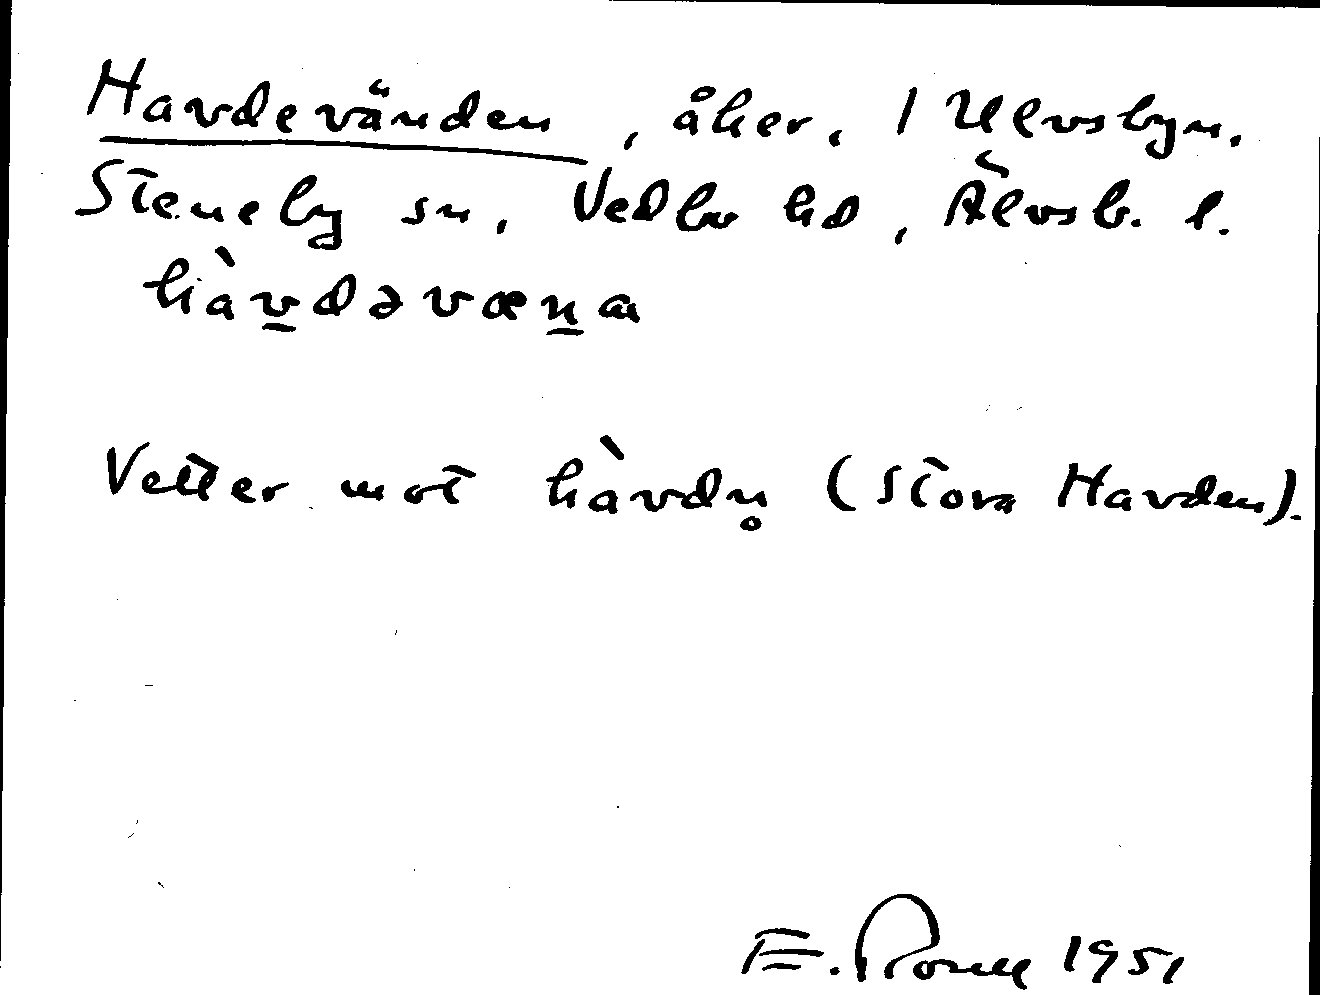 Havdevänden, åker, 1 Ulvsbyn.
Steneby sn, Vedbo hd, Älvsb. l.
hàv̲dəvæn̲a
Vetter mot hàvdn̥ (Stora Havden).
E. 1951